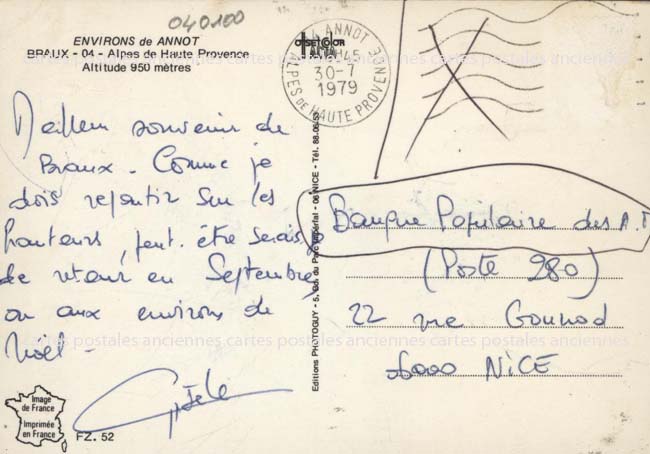 040100
ENVIRONS de ANNOT
BRAUX - 04 - Alpes de Haute Provence
Altitude 950 mètres
Meilleur souvenir de
Braux - Comme je
dois repartir sur les
hauteurs, peut-être serais
de retour en Septembre
ou aux environs de
Noël -
Gisèle
Image
de France
Imprimée
en France
FZ. 52
Editions PHOTOGUY - 5, du Parc Impérial - 06 NICE - Tél. 88-06-53
ANNOT
30-7
1979
ALPES DE HAUTE PROVENCE
Banque Populaire des A.
(Poste 980)
22 rue Gounod
6000 NICE
cartes postales anciennes cartes postales anciennes cartes postales anciennes
cartes postales anciennes cartes postales anciennes cartes postales anciennes